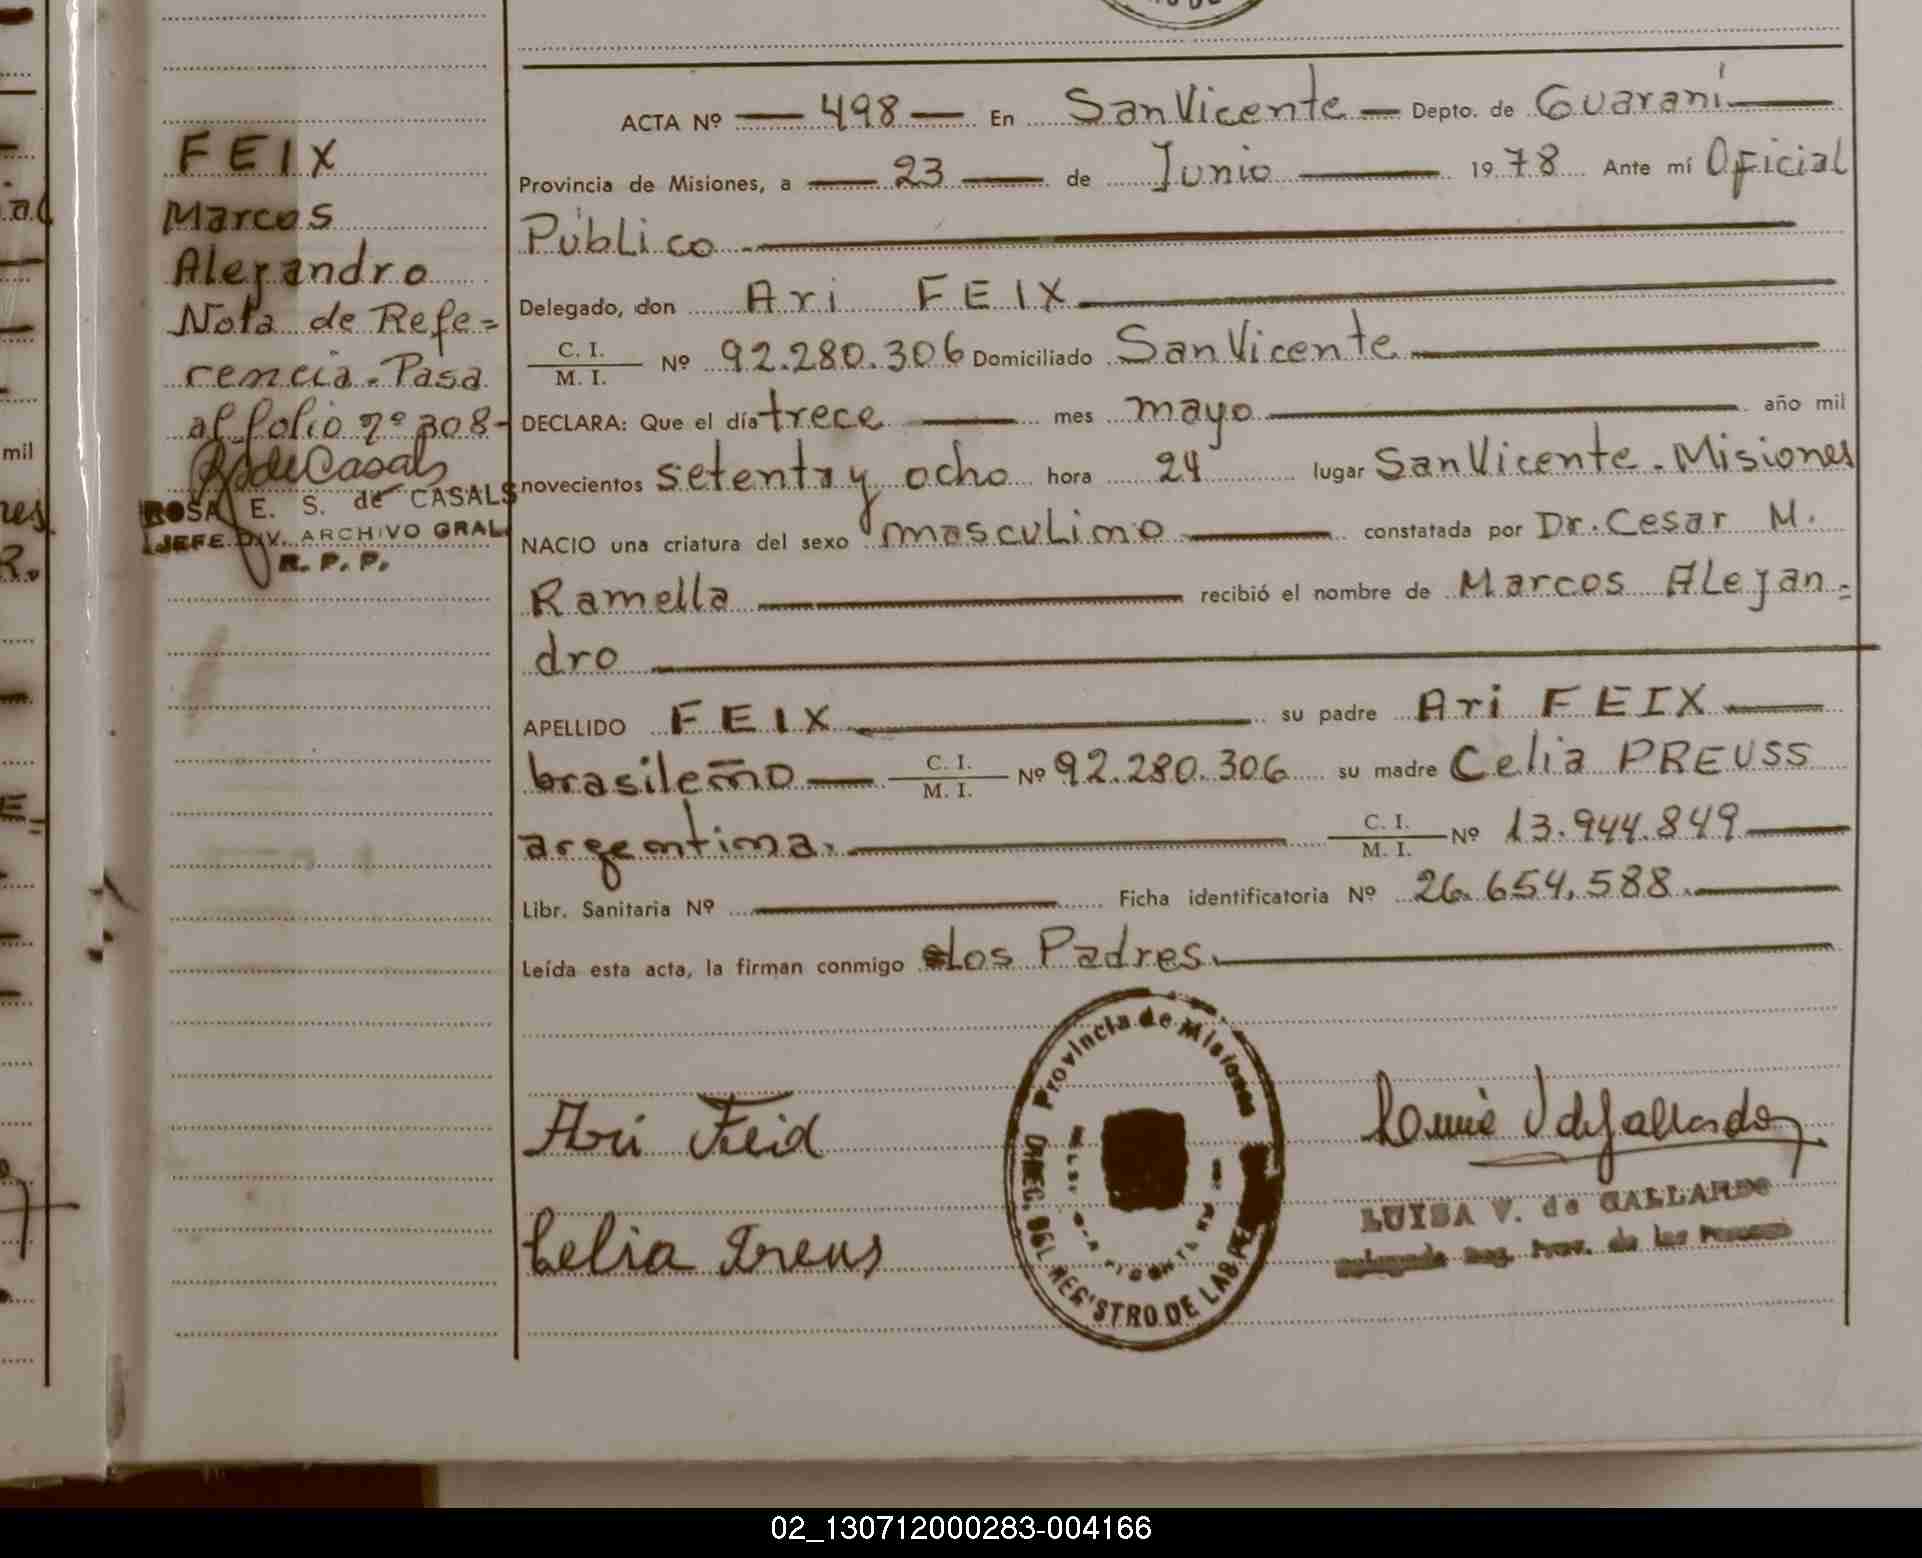 FEIX
Marcos
Alejandro
Nota de Refe=
rencia. Pasa
al folio nº 308-
ROSA E. S. de CASALS
JEFE DIV. ARCHIVO GRAL.
R. P. P.
ACTA Nº 498 En San Vicente Depto. de Guaraní
Provincia de Misiones, a 23 de Junio 1978 Ante mí Oficial
Público
Delegado, don Ari FEIX
C. I. / M. I. Nº 92.280.306 Domiciliado San Vicente
DECLARA: Que el día trece mes mayo año mil
novecientos setenta y ocho hora 24 lugar San Vicente. Misiones
NACIO una criatura del sexo masculino constatada por Dr. Cesar M.
Ramella recibió el nombre de Marcos Alejan=
dro
APELLIDO FEIX su padre Ari FEIX
brasileño C. I. / M. I. Nº 92.280.306 su madre Celia PREUSS
argentina. C. I. / M. I. Nº 13.944.849
Libr. Sanitaria Nº Ficha identificatoria Nº 26.654.588.
Leída esta acta, la firman conmigo los Padres.
Provincia de Misiones
DIREC. DEL REGISTRO DE LAS PE
Ari Feid
Celia Preus
LUISA V. de GALLARDO
Prov. de las
02_130712000283-004166